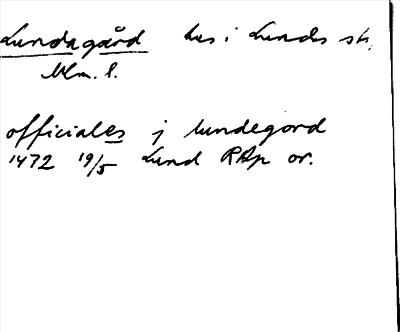 Lundagård hus i Lunds st.
Mlm. l.
officiales j lundegord
1472 19/5 Lund RAp or.